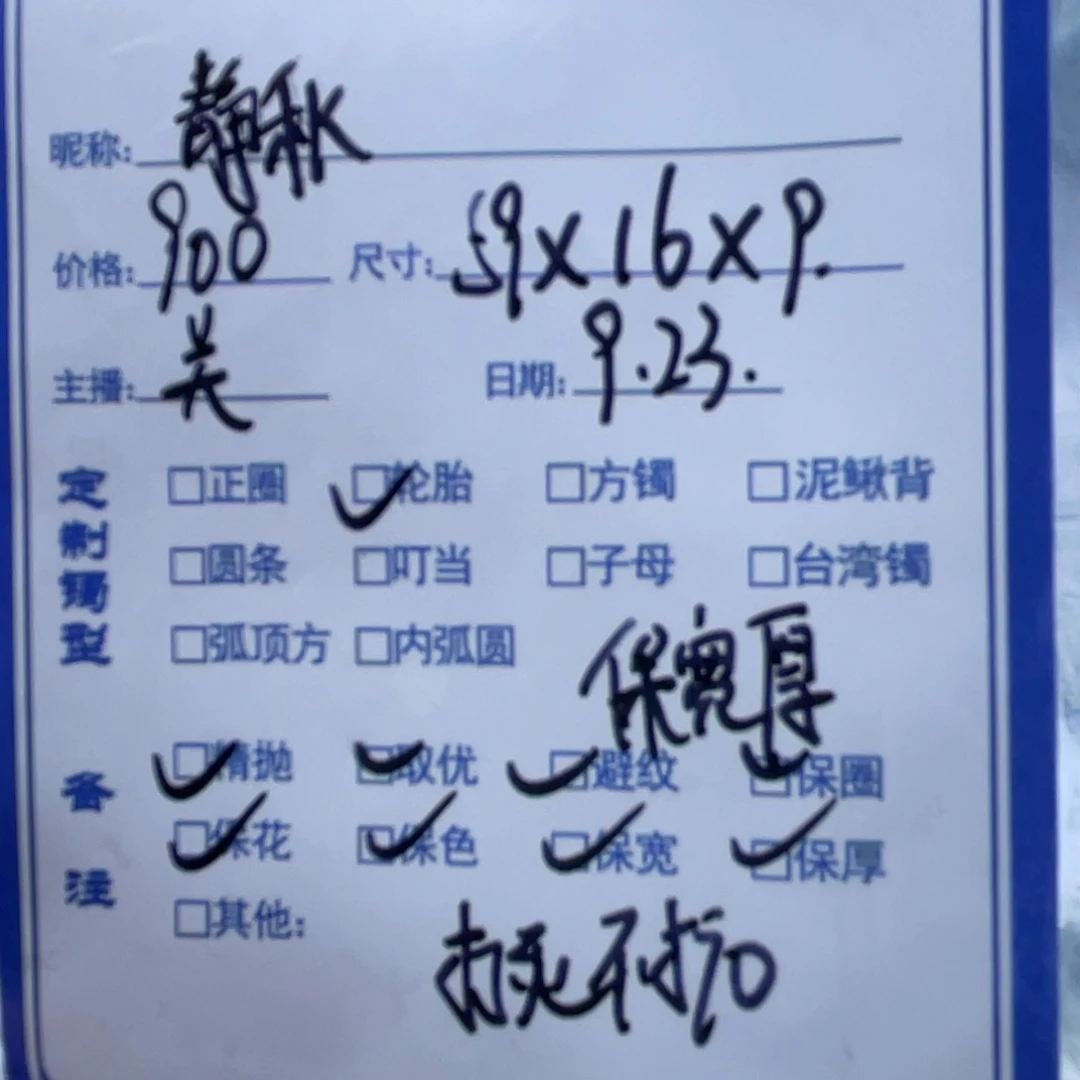 昵称: 静秋
价格: 900 尺寸: 59×16×9.
主播: 关 日期: 9.23.
定制镯型
□正圈 ☑轮胎 □方镯 □泥鳅背
□圆条 □叮当 □子母 □台湾镯
□弧顶方 □内弧圆
保宽厚
备注
☑精抛 ☑取优 ☑避纹 ☑保圈
☑保花 ☑保色 ☑保宽 ☑保厚
□其他:
打死不抗